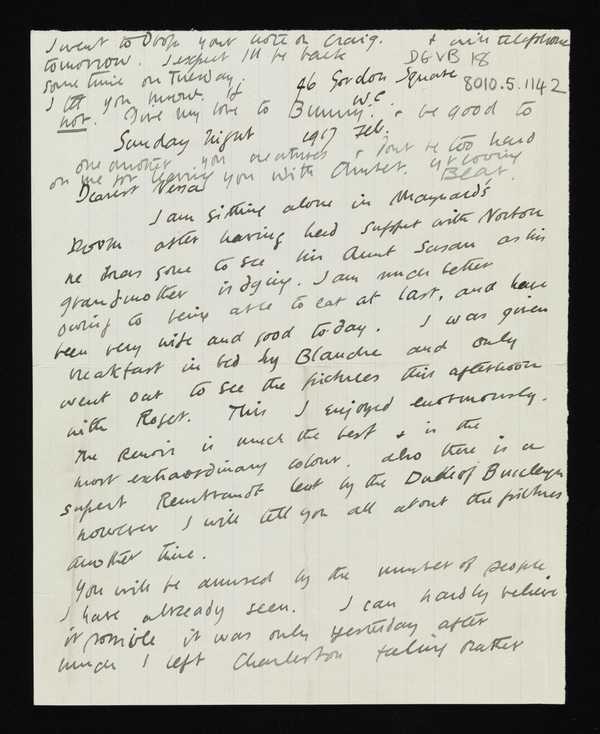 I went to Drop your note on Craig. & will telephone
tomorrow. I expect I'll be back
some time on Tuesday.
I'll let you know if
not. Give my love to Bunny. & be good to
one another you creatures & don't be too hard
on me for leaving you with Chutes. Yr loving
Bear.
DGVB 18
8010.5.1142
46 Gordon Square
W.C.
Sunday Night 1917 Feb.
Dearest Nessa
I am sitting alone in Maynard's
room after having had supper with Norton
he has gone to see his Aunt Susan as his
grandmother is dying. I am much better
owing to being able to eat at last, and have
been very wise and good today. I was given
breakfast in bed by Blanche and only
went out to see the pictures this afternoon
with Roger. This I enjoyed enormously.
The Renoir is much the best & is the
most extraordinary colour. also there is a
superb Rembrandt lent by the Duke of Buccleugh
however I will tell you all about the pictures
another time.
You will be amused by the number of people
I have already seen. I can hardly believe
it possible it was only yesterday after
lunch I left Charleston feeling rather